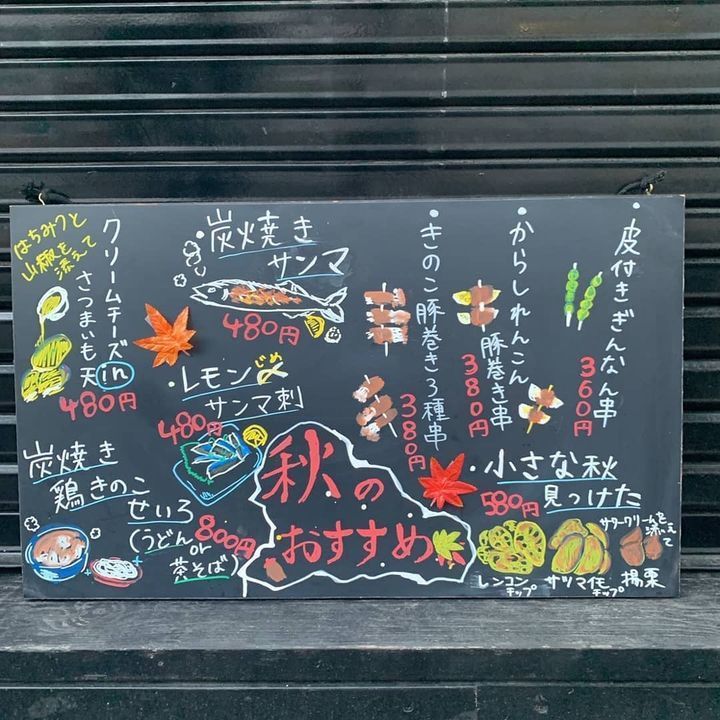 ・皮付きぎんなん串
360円
・からしれんこん
豚巻き串
380円
・きのこ豚巻き3種串
380円
・炭焼き
サンマ
480円
・レモン〆
じめ
サンマ刺
480円
クリームチーズin
さつまいも天
480円
はちみつと
山椒を
添えて
炭焼き
鶏きのこ
せいろ
(うどん
or
茶そば)
800円
秋の
おすすめ
・小さな秋
見っけた
580円
サワークリームを
添えて
レンコン
チップ
サツマイモ
チップ
揚栗